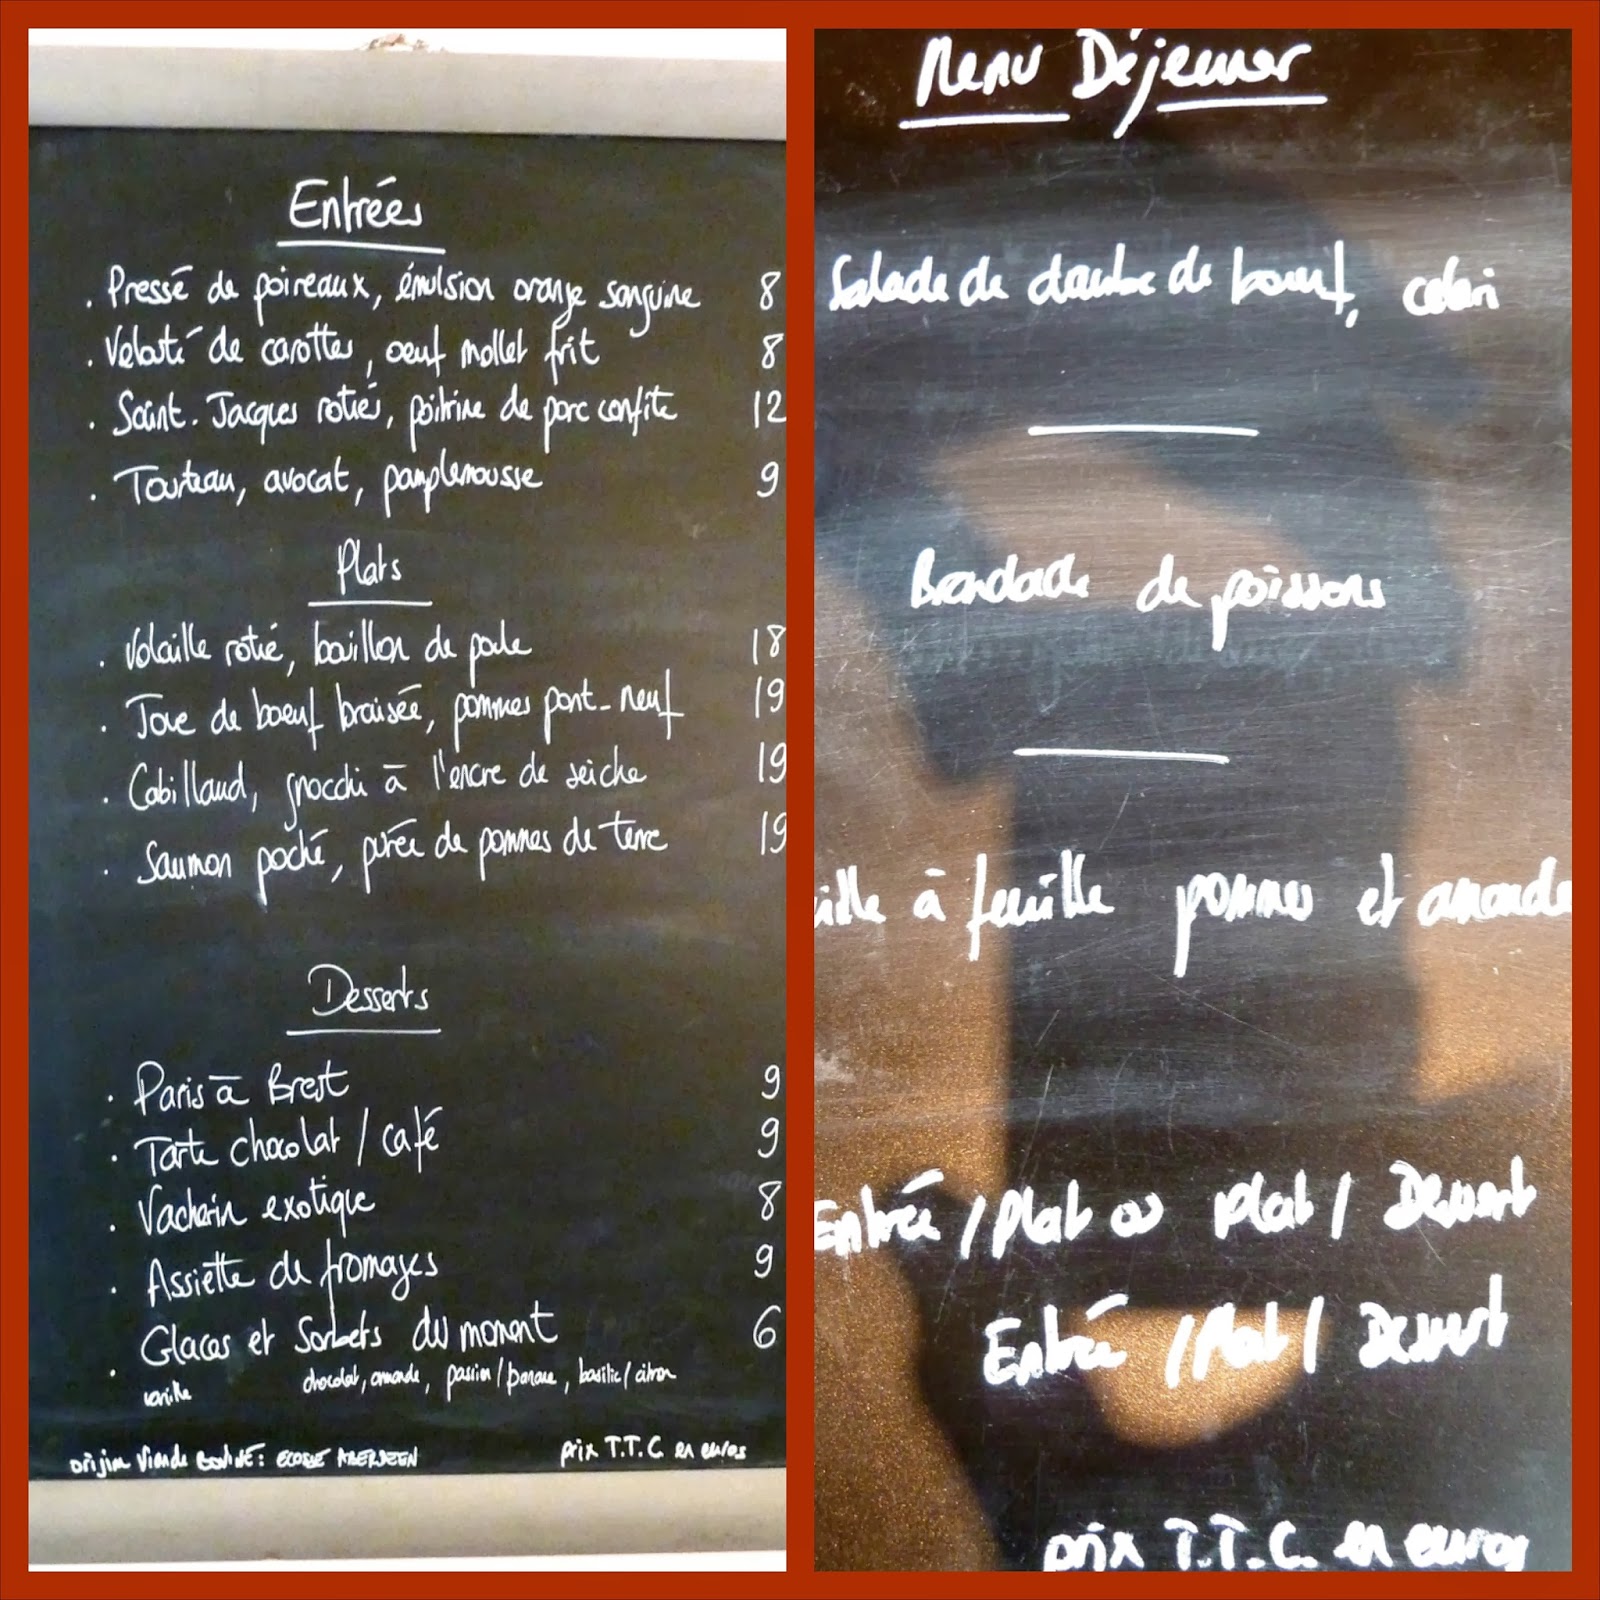 Entrées
. Pressé de poireaux, émulsion orange sanguine 8
. Velouté de carottes, oeuf mollet frit 8
. Saint-Jacques roties, poitrine de porc confite 12
. Tourteau, avocat, pamplemousse 9
Plats
. Volaille rotie, bouillon de poule 18
. Joue de boeuf braisée, pommes pont-neuf 19
. Cabillaud, gnocchi à l'encre de seiche 19
. Saumon poché, purée de pommes de terre 19
Desserts
. Paris à Brest 9
. Tarte chocolat / café 9
. Vacherin exotique 8
. Assiette de fromages 9
. Glaces et Sorbets du moment 6
vanille chocolat, amande, passion/banane, basilic/citron
origine Viande Bovine: ECOSSE ABERDEEN prix T.T.C en euros
Menu Déjeuner
Salade de daube de boeuf, celeri
Brandade de poissons
uille à feuille pommes et amande
Entrée / Plat ou Plat / Dessert
Entrée / Plat / Dessert
prix T.T.C. en euros